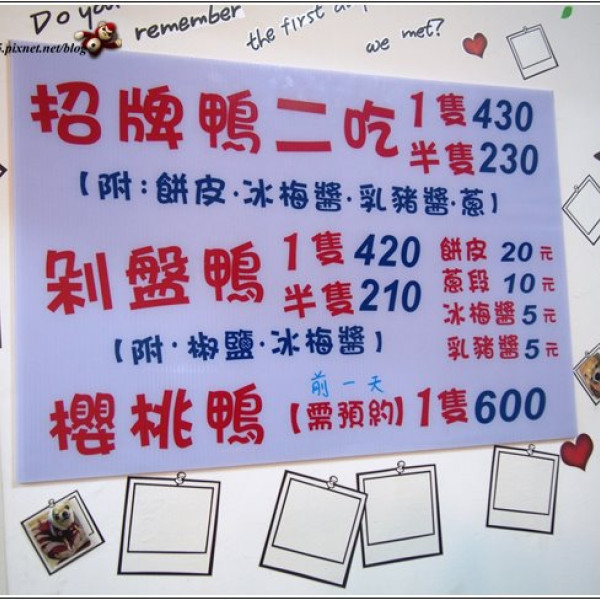 Do you
remember
the first
we met?
.pixnet.net/blog
招牌鴨二吃 1隻430
半隻230
【附:餅皮·冰梅醬·乳豬醬·蔥】
剁盤鴨 1隻420
半隻210
【附·椒鹽·冰梅醬】
餅皮 20元
蔥段 10元
冰梅醬 5元
乳豬醬 5元
前一天
櫻桃鴨【需預約】1隻600